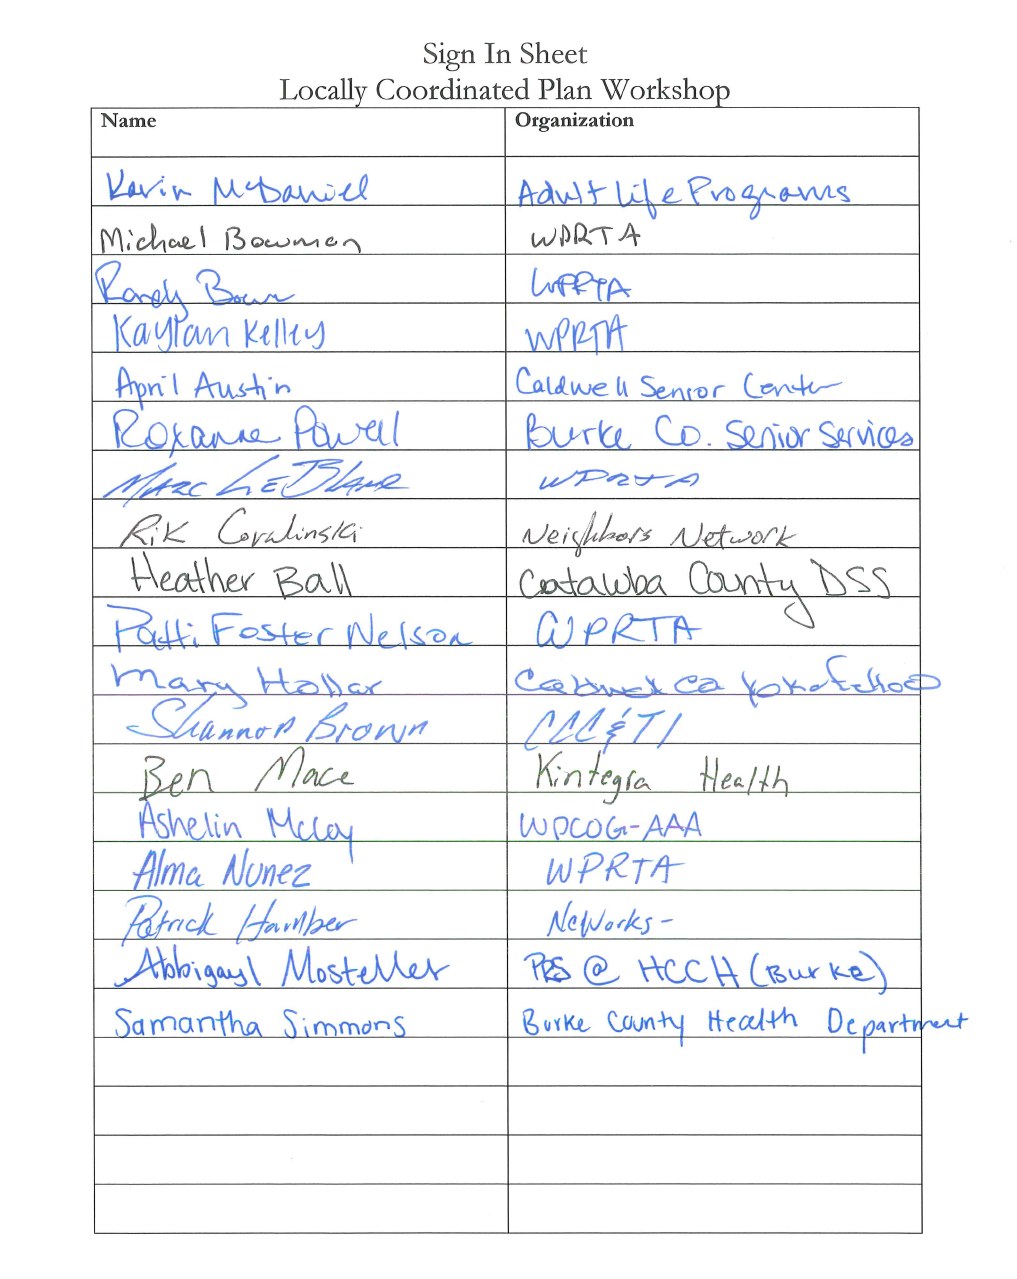 Sign In Sheet
Locally Coordinated Plan Workshop
Name Organization
Kevin McDaniel Adult Life Programs
Michael Bowman WPRTA
Randy WPRTA
Kaylan Kelley WPRTA
April Austin Caldwell Senior Center
Roxanne Powell Burke Co. Senior Services
Marc LeBlanc WPRTA
Rik Covalinski Neighbors Network
Heather Ball Catawba County DSS
Patti Foster Nelson WPRTA
Mary Hollar
Shannon Brown CCC&TI
Ben Mace Kintegra Health
Ashelin McCoy WPCOG-AAA
Alma Nunez WPRTA
Patrick NCWorks-
Abbigayl Mosteller PRS @ HCCH (Burke)
Samantha Simmons Burke County Health Department